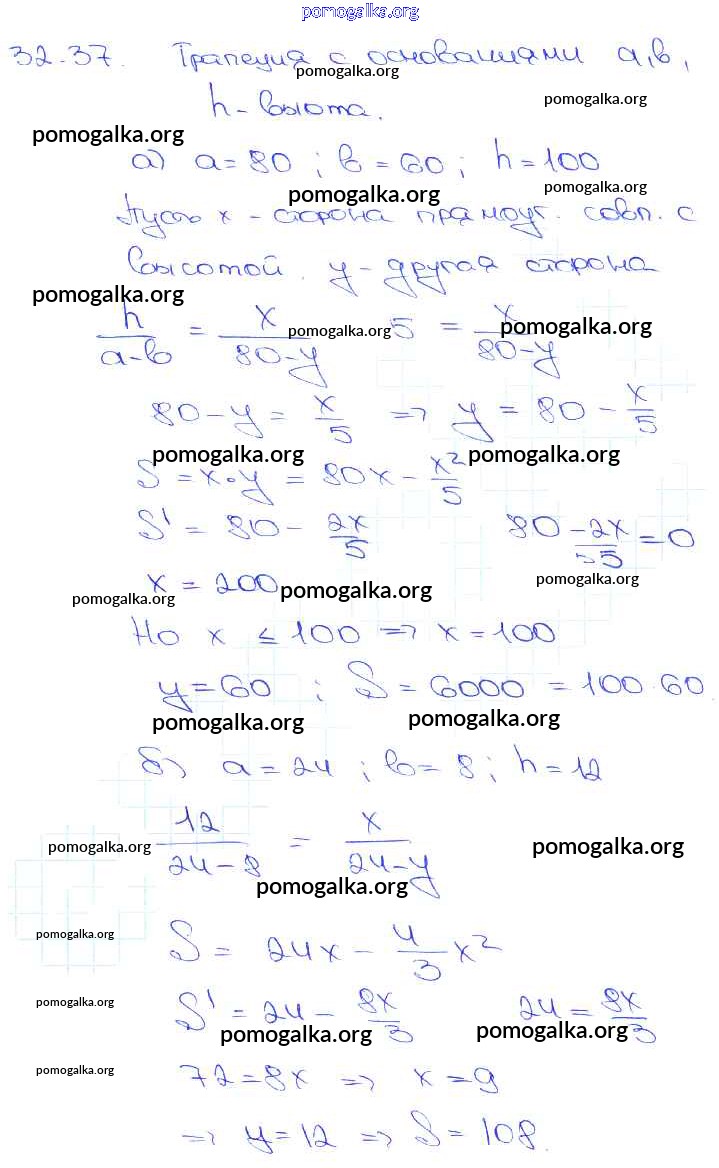 pomogalka.org
32.37. Трапеция с основаниями a, b,
pomogalka.org
h - высота.
pomogalka.org
pomogalka.org
а) a = 80 ; b = 60 ; h = 100
pomogalka.org
pomogalka.org
Пусть x - сторона прямоуг. совп. с
высотой. y - другая сторона
pomogalka.org
h/(a-b) = x/(80-y) 5 = x/(80-y)
pomogalka.org
pomogalka.org
80 - y = x/5 => y = 80 - x/5
pomogalka.org
pomogalka.org
S = x·y = 80x - x²/5
S' = 80 - 2x/5 80 - 2x/5 = 0
pomogalka.org
x = 200
pomogalka.org
pomogalka.org
Но x ≤ 100 => x = 100
y = 60 ; S = 6000 = 100·60.
pomogalka.org
pomogalka.org
б) a = 24 ; b = 8 ; h = 12
12/(24-8) = x/(24-y)
pomogalka.org
pomogalka.org
pomogalka.org
pomogalka.org
S = 24x - 4/3 x²
pomogalka.org
S' = 24 - 8x/3 24 = 8x/3
pomogalka.org
pomogalka.org
pomogalka.org
72 = 8x => x = 9
=> y = 12 => S = 108.